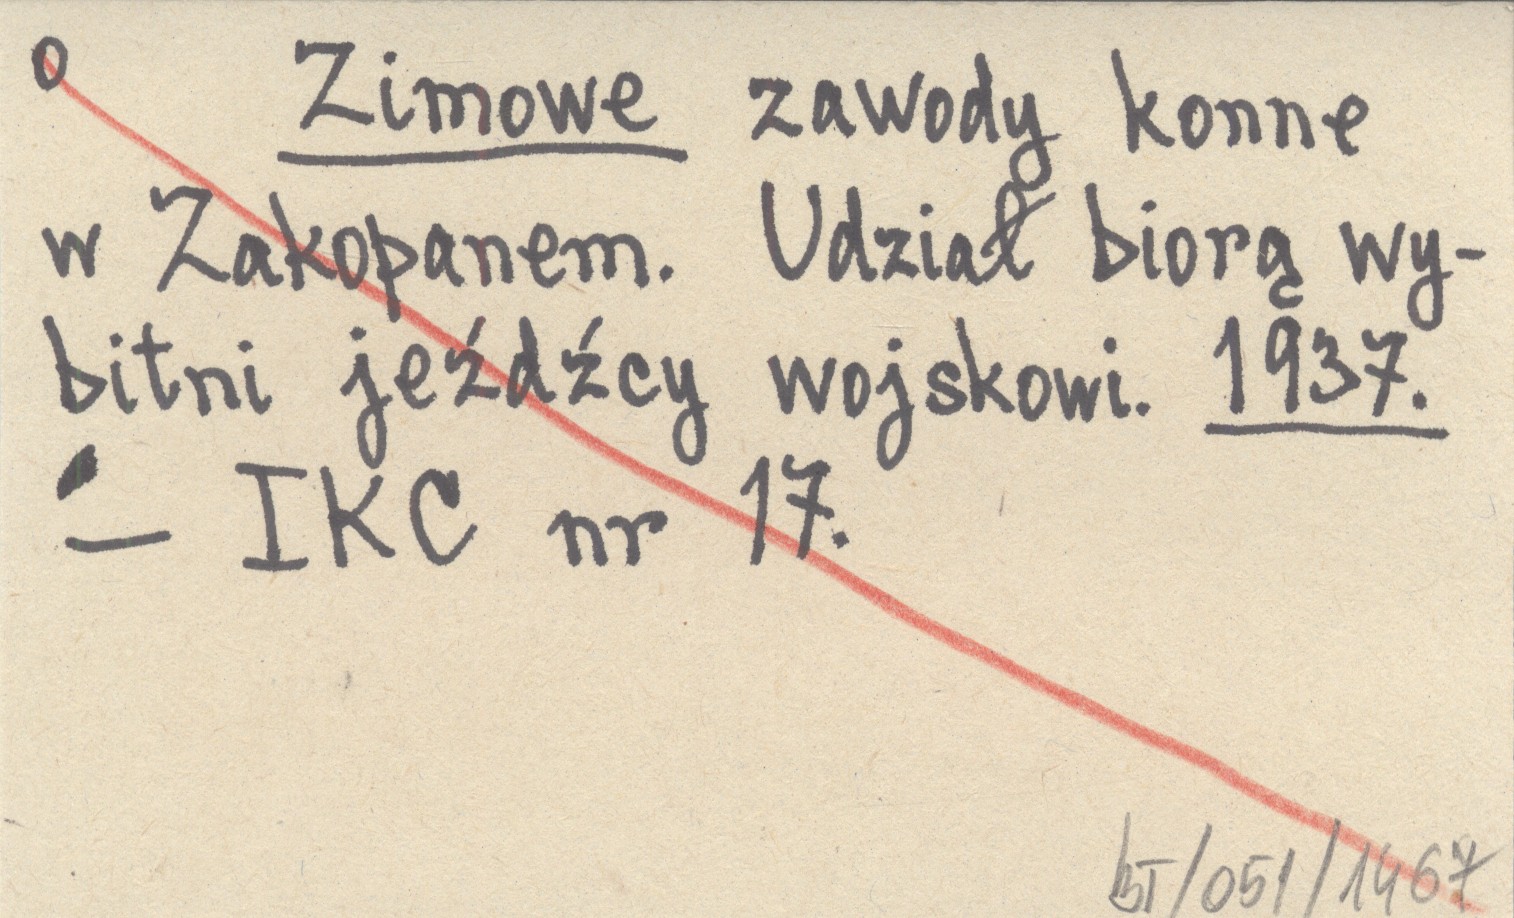 o Zimowe zawody konne
w Zakopanem. Udział biorą wy-
bitni jeźdźcy wojskowi. 1937.
– IKC nr 17.
BT/051/1467